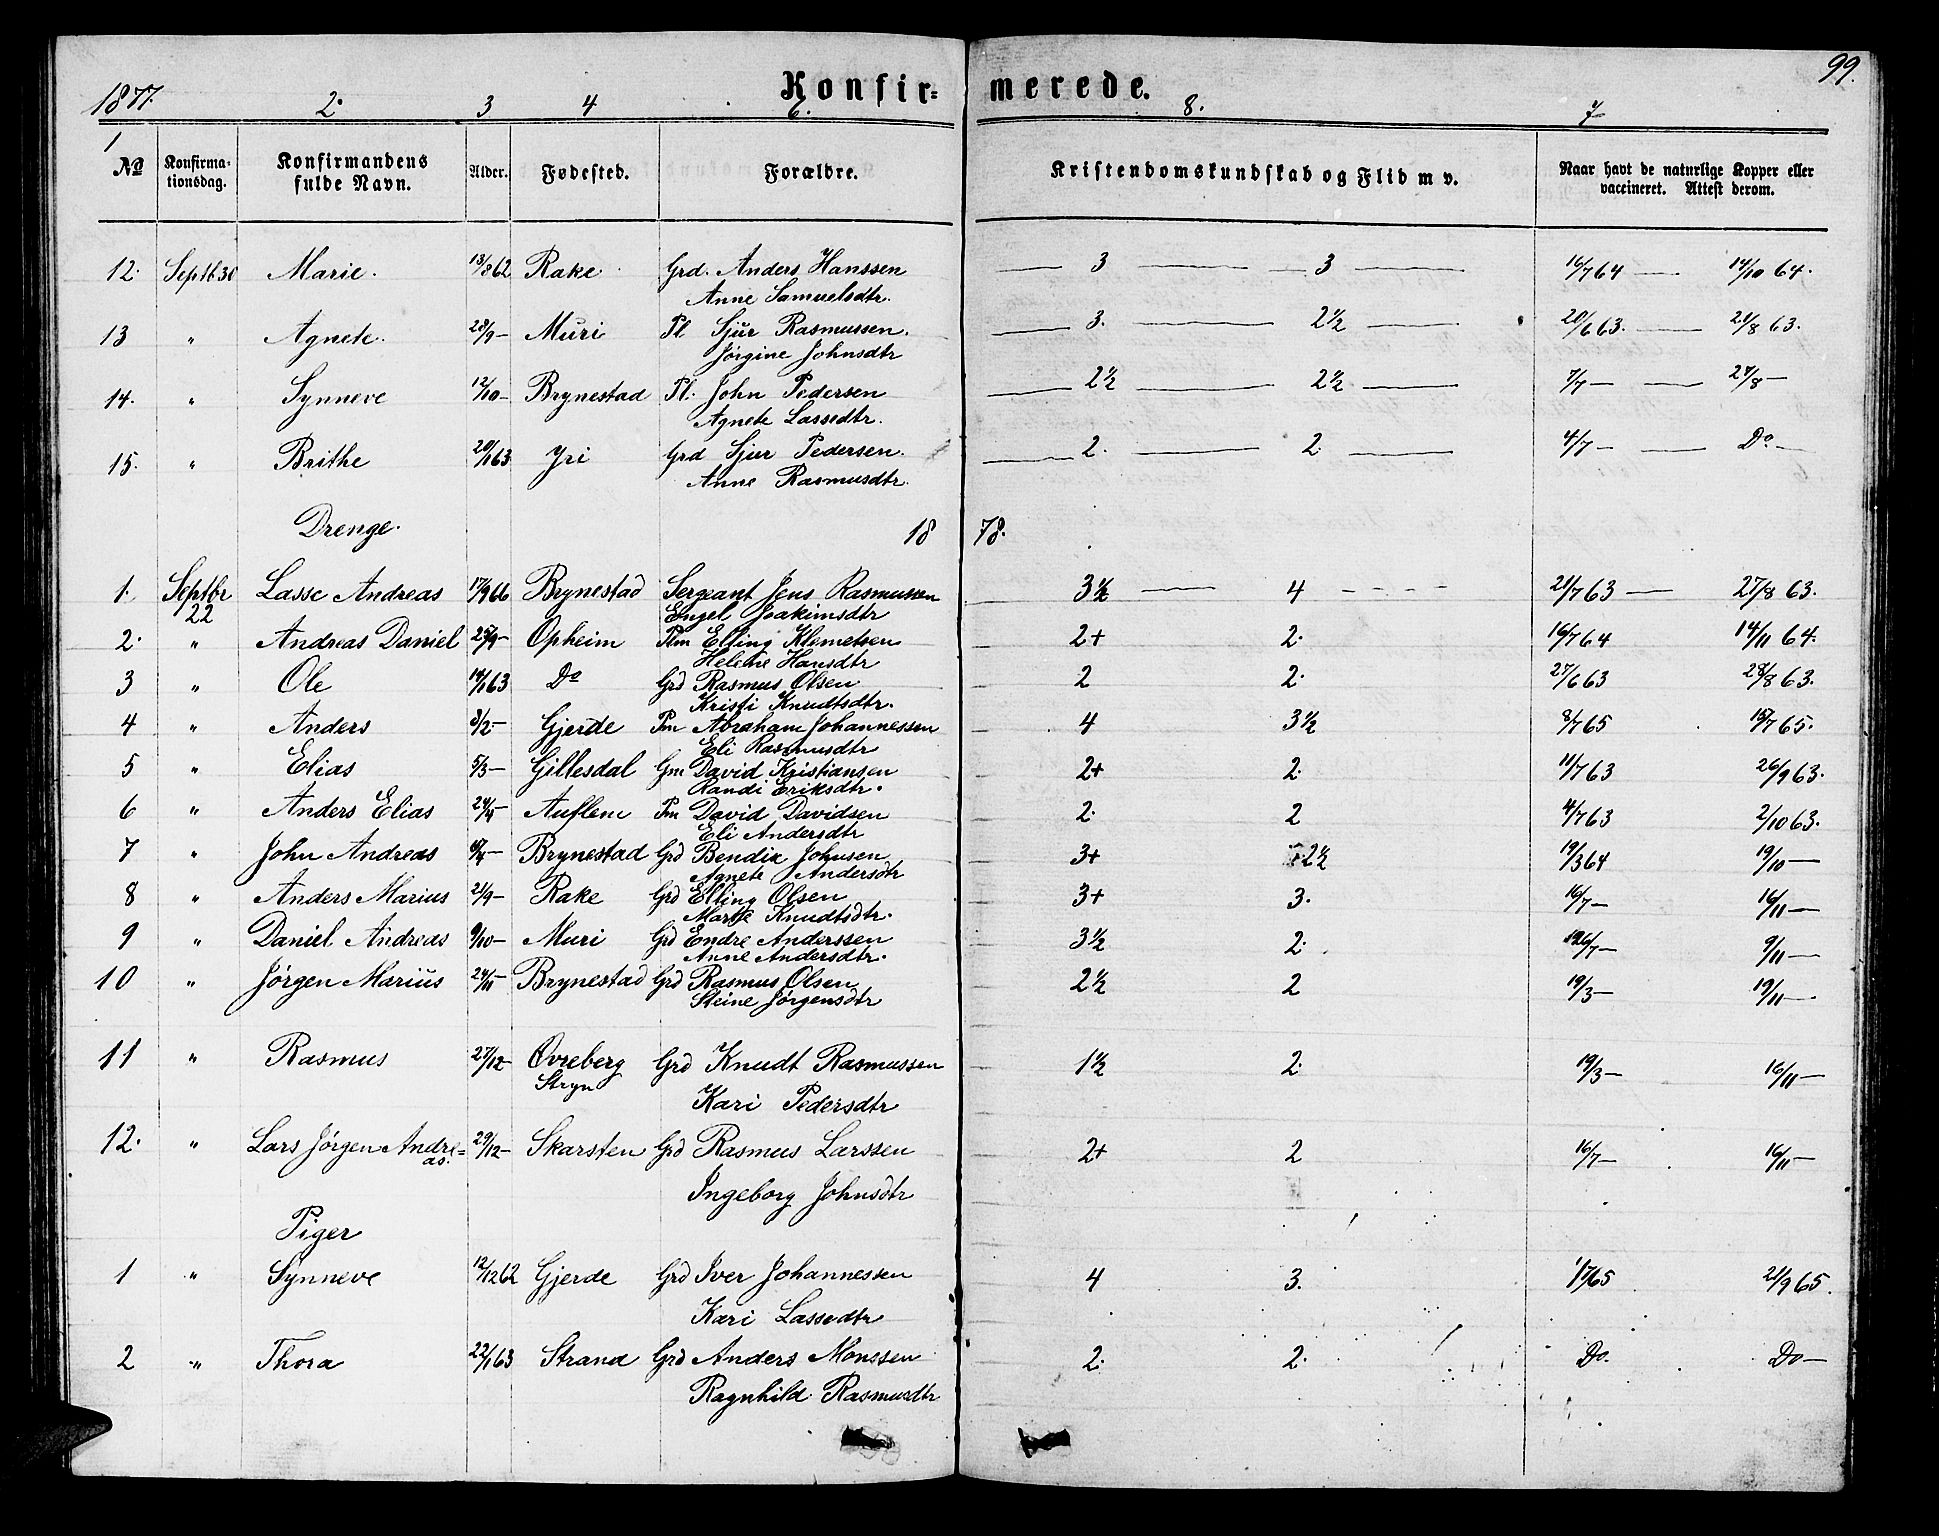 99.
1877. Konfirmerede.
1 2. 3 4 6. 8. 7
No Konfirmationsdag. Konfirmandens fulde Navn. Alder. Fødested. Forældre. Kristendomskundskab og Flid m v. Naar havt de naturlige Kopper eller vaccineret. Attest derom.
12. Septb. 30 Marie. 13/8 62 Rake Grd. Anders Hanssen 3 3 16/7 64 14/10 64.
Anne Samuelsdtr.
13 " Agnete. 28/9 – Muri Pl Sjur Rasmussen. 3. 2½ 20/6 63. 20/8 63.
Jørgine Johnsdtr
14. " Synneve 12/10 – Brynestad Pl. John Pedersen 2½ 2½ 7/7 – 27/8 –
Agnete Lassedtr.
15. " Brithe 20/1 63 Yri Grd Sjur Pedersen. 2. 2. 4/7 – Do –
Anne Rasmusdtr.
Drenge. 1878.
1. Septbr 22 Lasse Andreas 17/9 66 Brynestad Sergeant Jens Rasmussen 3½ 4 21/7 63 27/8 63.
Engel Joakimsdtr
2. " Andreas Daniel 25/9 – Opheim Plm Elling Klemetsen 2+ 2. 16/7 64 14/11 64.
Helene Hansdtr
3 " Ole 14/1 63 Do Grd Rasmus Olsen 2 2. 27/6 63 28/8 63.
Kristi Knudtsdtr.
4 " Anders 3/2 – Gjerde Pm Abraham Johannessen 4 3½ 8/7 65 15/7 65.
Eli Rasmusdtr
5 " Elias 5/3 – Gillesdal Gm David Kristiansen 2+ 2. 11/7 63 26/9 63.
Randi Eriksdtr.
6 " Anders Elias 24/4 – Auflem Pm David Davidsen 2. 2 4/7 63 2/10 63.
Eli Andersdtr
7 " John Andreas Brynestad Grd Bendix Johnsen 3+ 2½ 19/3 64 19/10 –
Agnete Andersdtr
8 " Anders Marius 21/9 – Rake Grd Elling Olsen 3+ 3. 16/7 – 16/11 –
Marthe Knudtsdtr.
9 " Daniel Andreas 9/10 – Muri Grd Endre Anderssen 3½ 2. 9/11 –
Anne Andersdtr.
10 " Jørgen Marius 24/11 – Brynestad Grd Rasmus Olsen 2½ 2 19/3 – 19/11 –
Steine Jørgensdtr
11 " Rasmus 27/12 – Øvreberg Grd Knudt Rasmussen 1½ 2. 19/3 – 16/11 –
Stryn Kari Pedersdtr
12. " Lars Jørgen Andreas. 29/12 – Skarsten Grd Rasmus Larssen 2+ 2 16/7 – 16/11 –
Ingeborg Johnsdtr
Piger
1 " Synneve 12/12 62 Gjerde Grd Iver Johannessen 4 3. 1/7 65 21/9 65.
Kari Lassedtr
2 " Thora 22/1 63 Strand Grd Anders Monssen 2. 2. Do. Do –
Ragnhild Rasmusdtr